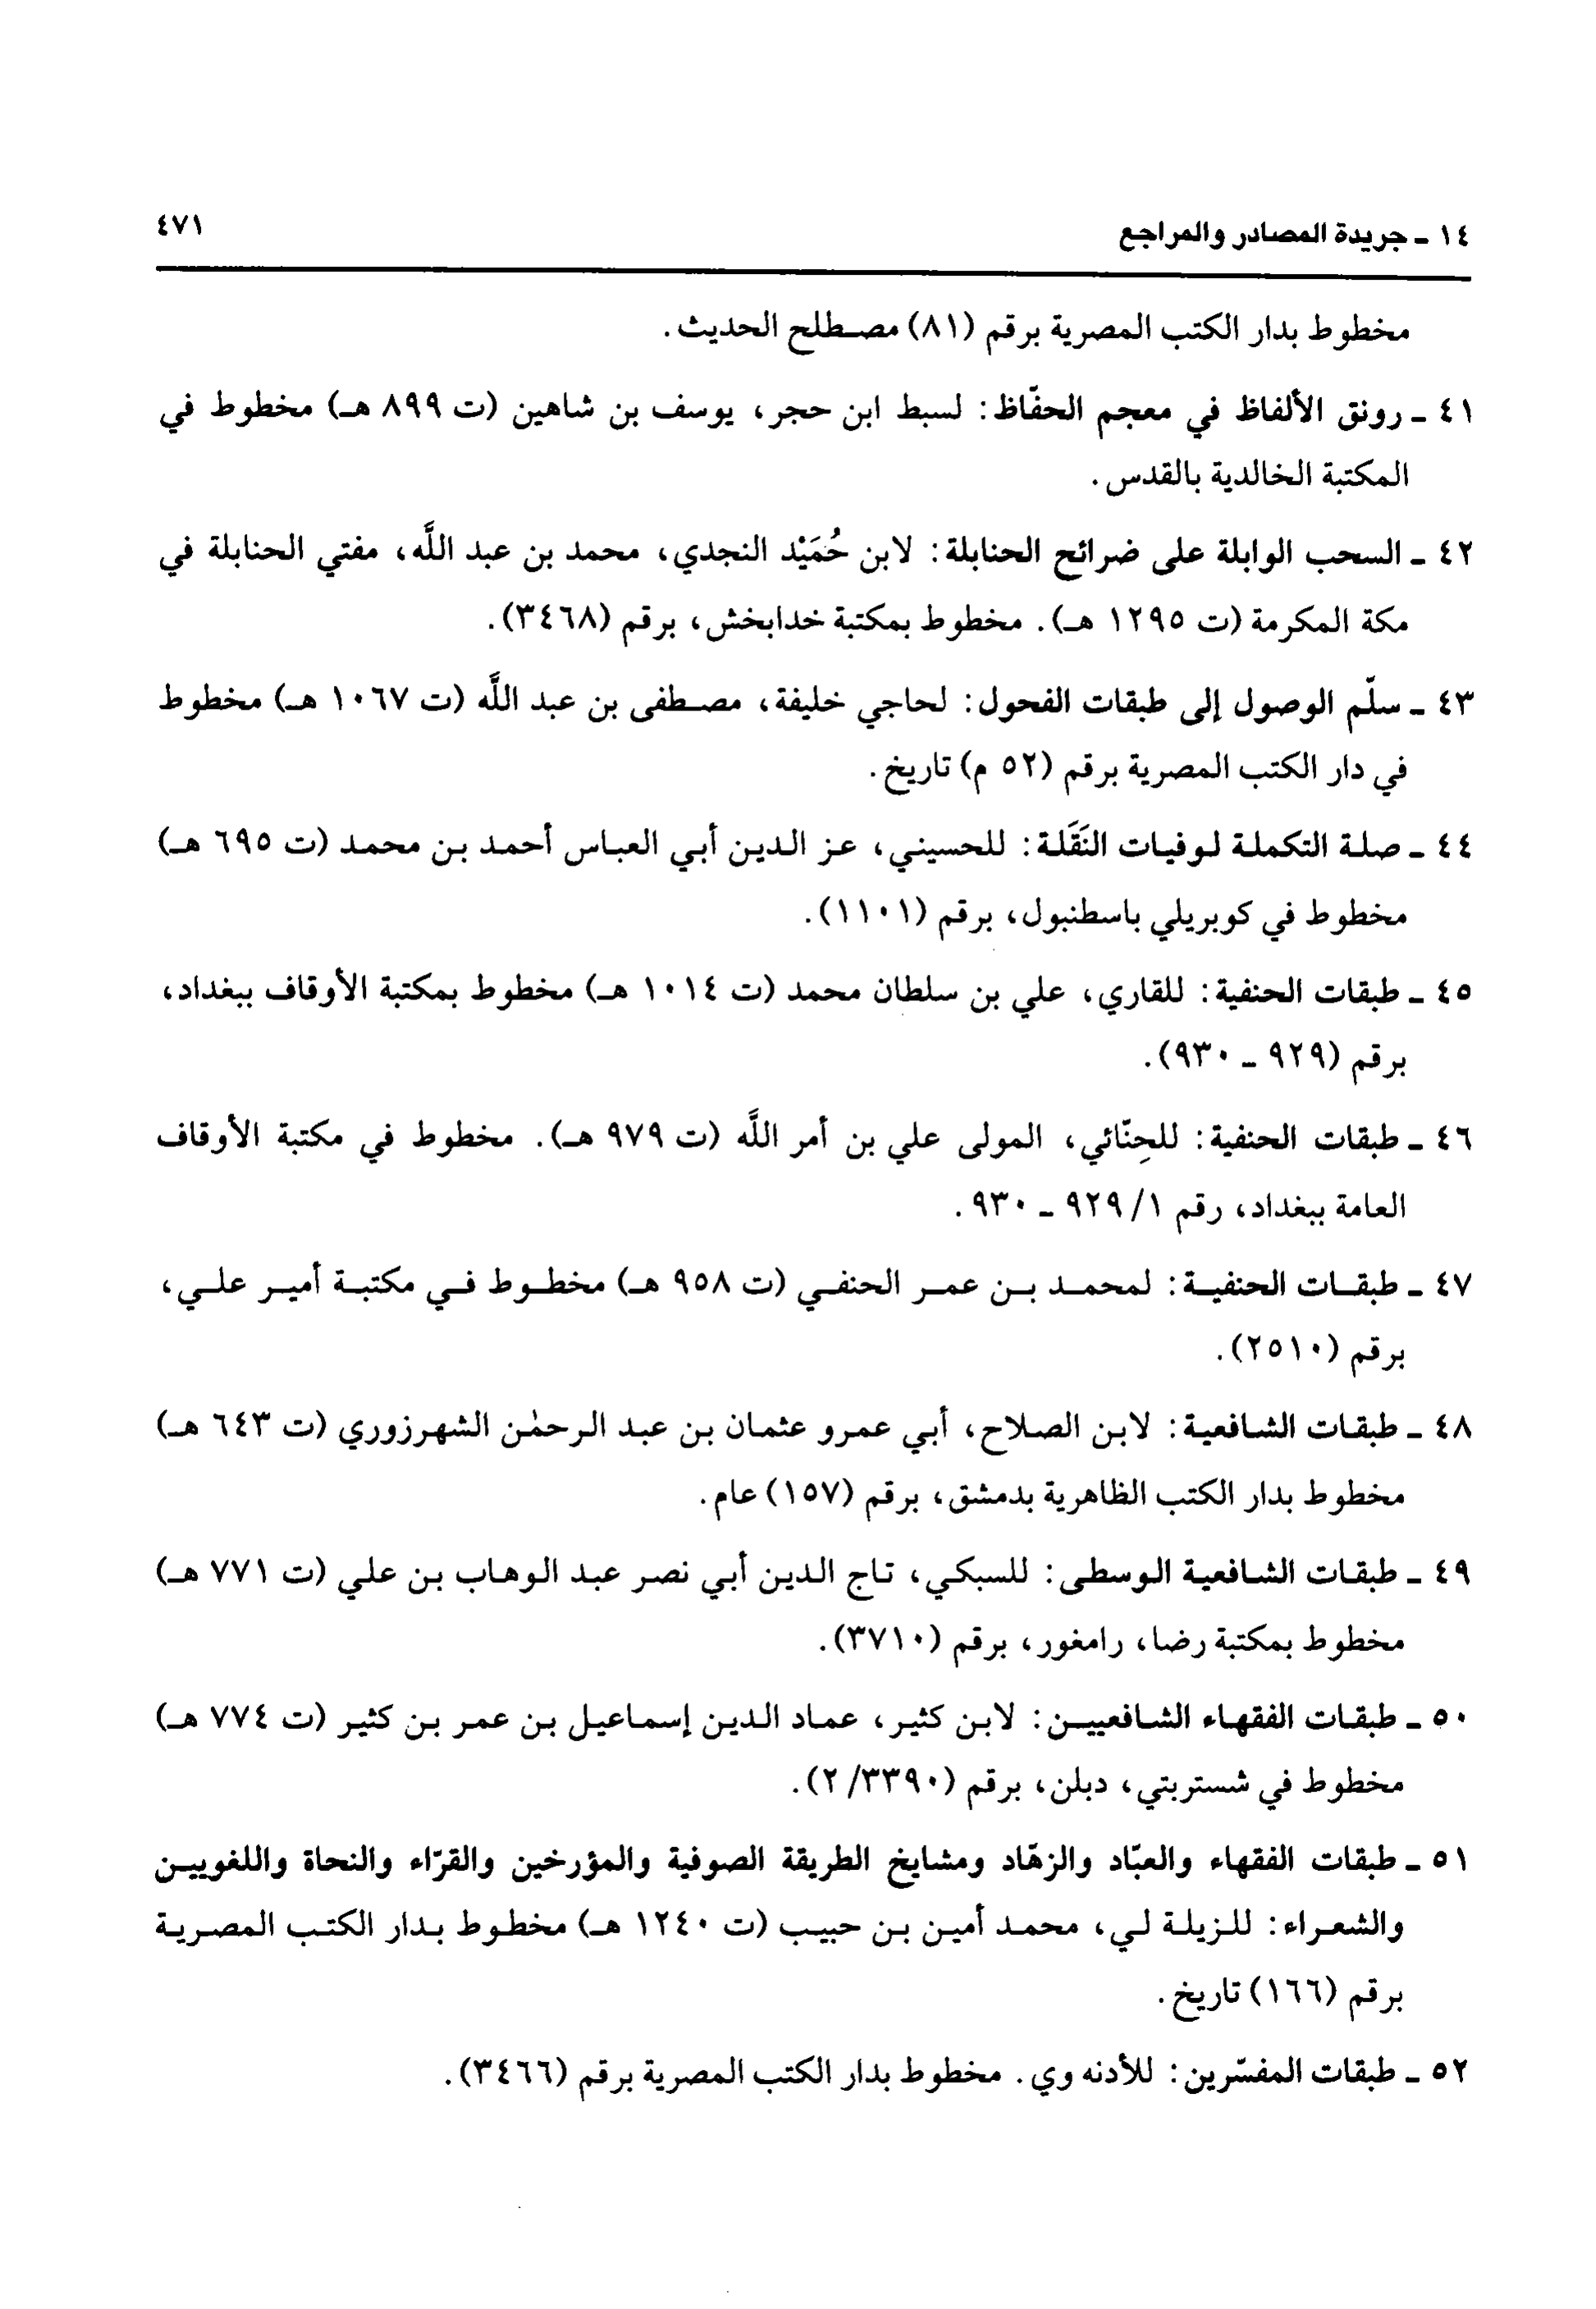 ١٤ - جريدة المصادر والمراجع ٤٧١
مخطوط بدار الكتب المصرية برقم (٨١) مصطلح الحديث.
٤١ - رونق الألفاظ في معجم الحفّاظ: لسبط ابن حجر، يوسف بن شاهين (ت ٨٩٩ هـ) مخطوط في
المكتبة الخالدية بالقدس.
٤٢ - السحب الوابلة على ضرائح الحنابلة: لابن حُمَيْد النجدي، محمد بن عبد اللَّه، مفتي الحنابلة في
مكة المكرمة (ت ١٢٩٥ هـ). مخطوط بمكتبة خدابخش، برقم (٣٤٦٨).
٤٣ - سلّم الوصول إلى طبقات الفحول: لحاجي خليفة، مصطفى بن عبد اللَّه (ت ١٠٦٧ هـ) مخطوط
في دار الكتب المصرية برقم (٥٢ م) تاريخ.
٤٤ - صلة التكملة لوفيات النَقَلة: للحسيني، عز الدين أبي العباس أحمد بن محمد (ت ٦٩٥ هـ)
مخطوط في كوبريلي باسطنبول، برقم (١١٠١).
٤٥ - طبقات الحنفية: للقاري، علي بن سلطان محمد (ت ١٠١٤ هـ) مخطوط بمكتبة الأوقاف ببغداد،
برقم (٩٢٩ - ٩٣٠).
٤٦ - طبقات الحنفية: للحِنّائي، المولى علي بن أمر اللَّه (ت ٩٧٩ هـ). مخطوط في مكتبة الأوقاف
العامة ببغداد، رقم ١/ ٩٢٩ - ٩٣٠.
٤٧ - طبقات الحنفية: لمحمد بن عمر الحنفي (ت ٩٥٨ هـ) مخطوط في مكتبة أمير علي،
برقم (٢٥١٠).
٤٨ - طبقات الشافعية: لابن الصلاح، أبي عمرو عثمان بن عبد الرحمٰن الشهرزوري (ت ٦٤٣ هـ)
مخطوط بدار الكتب الظاهرية بدمشق، برقم (١٥٧) عام.
٤٩ - طبقات الشافعية الوسطى: للسبكي، تاج الدين أبي نصر عبد الوهاب بن علي (ت ٧٧١ هـ)
مخطوط بمكتبة رضا، رامغور، برقم (٣٧١٠).
٥٠ - طبقات الفقهاء الشافعيين: لابن كثير، عماد الدين إسماعيل بن عمر بن كثير (ت ٧٧٤ هـ)
مخطوط في شستربتي، دبلن، برقم (٣٣٩٠/ ٢).
٥١ - طبقات الفقهاء والعبّاد والزهّاد ومشايخ الطريقة الصوفية والمؤرخين والقرّاء والنحاة واللغويين
والشعراء: للزيلة لي، محمد أمين بن حبيب (ت ١٢٤٠ هـ) مخطوط بدار الكتب المصرية
برقم (١٦٦) تاريخ.
٥٢ - طبقات المفسّرين: للأدنه وي. مخطوط بدار الكتب المصرية برقم (٣٤٦٦).